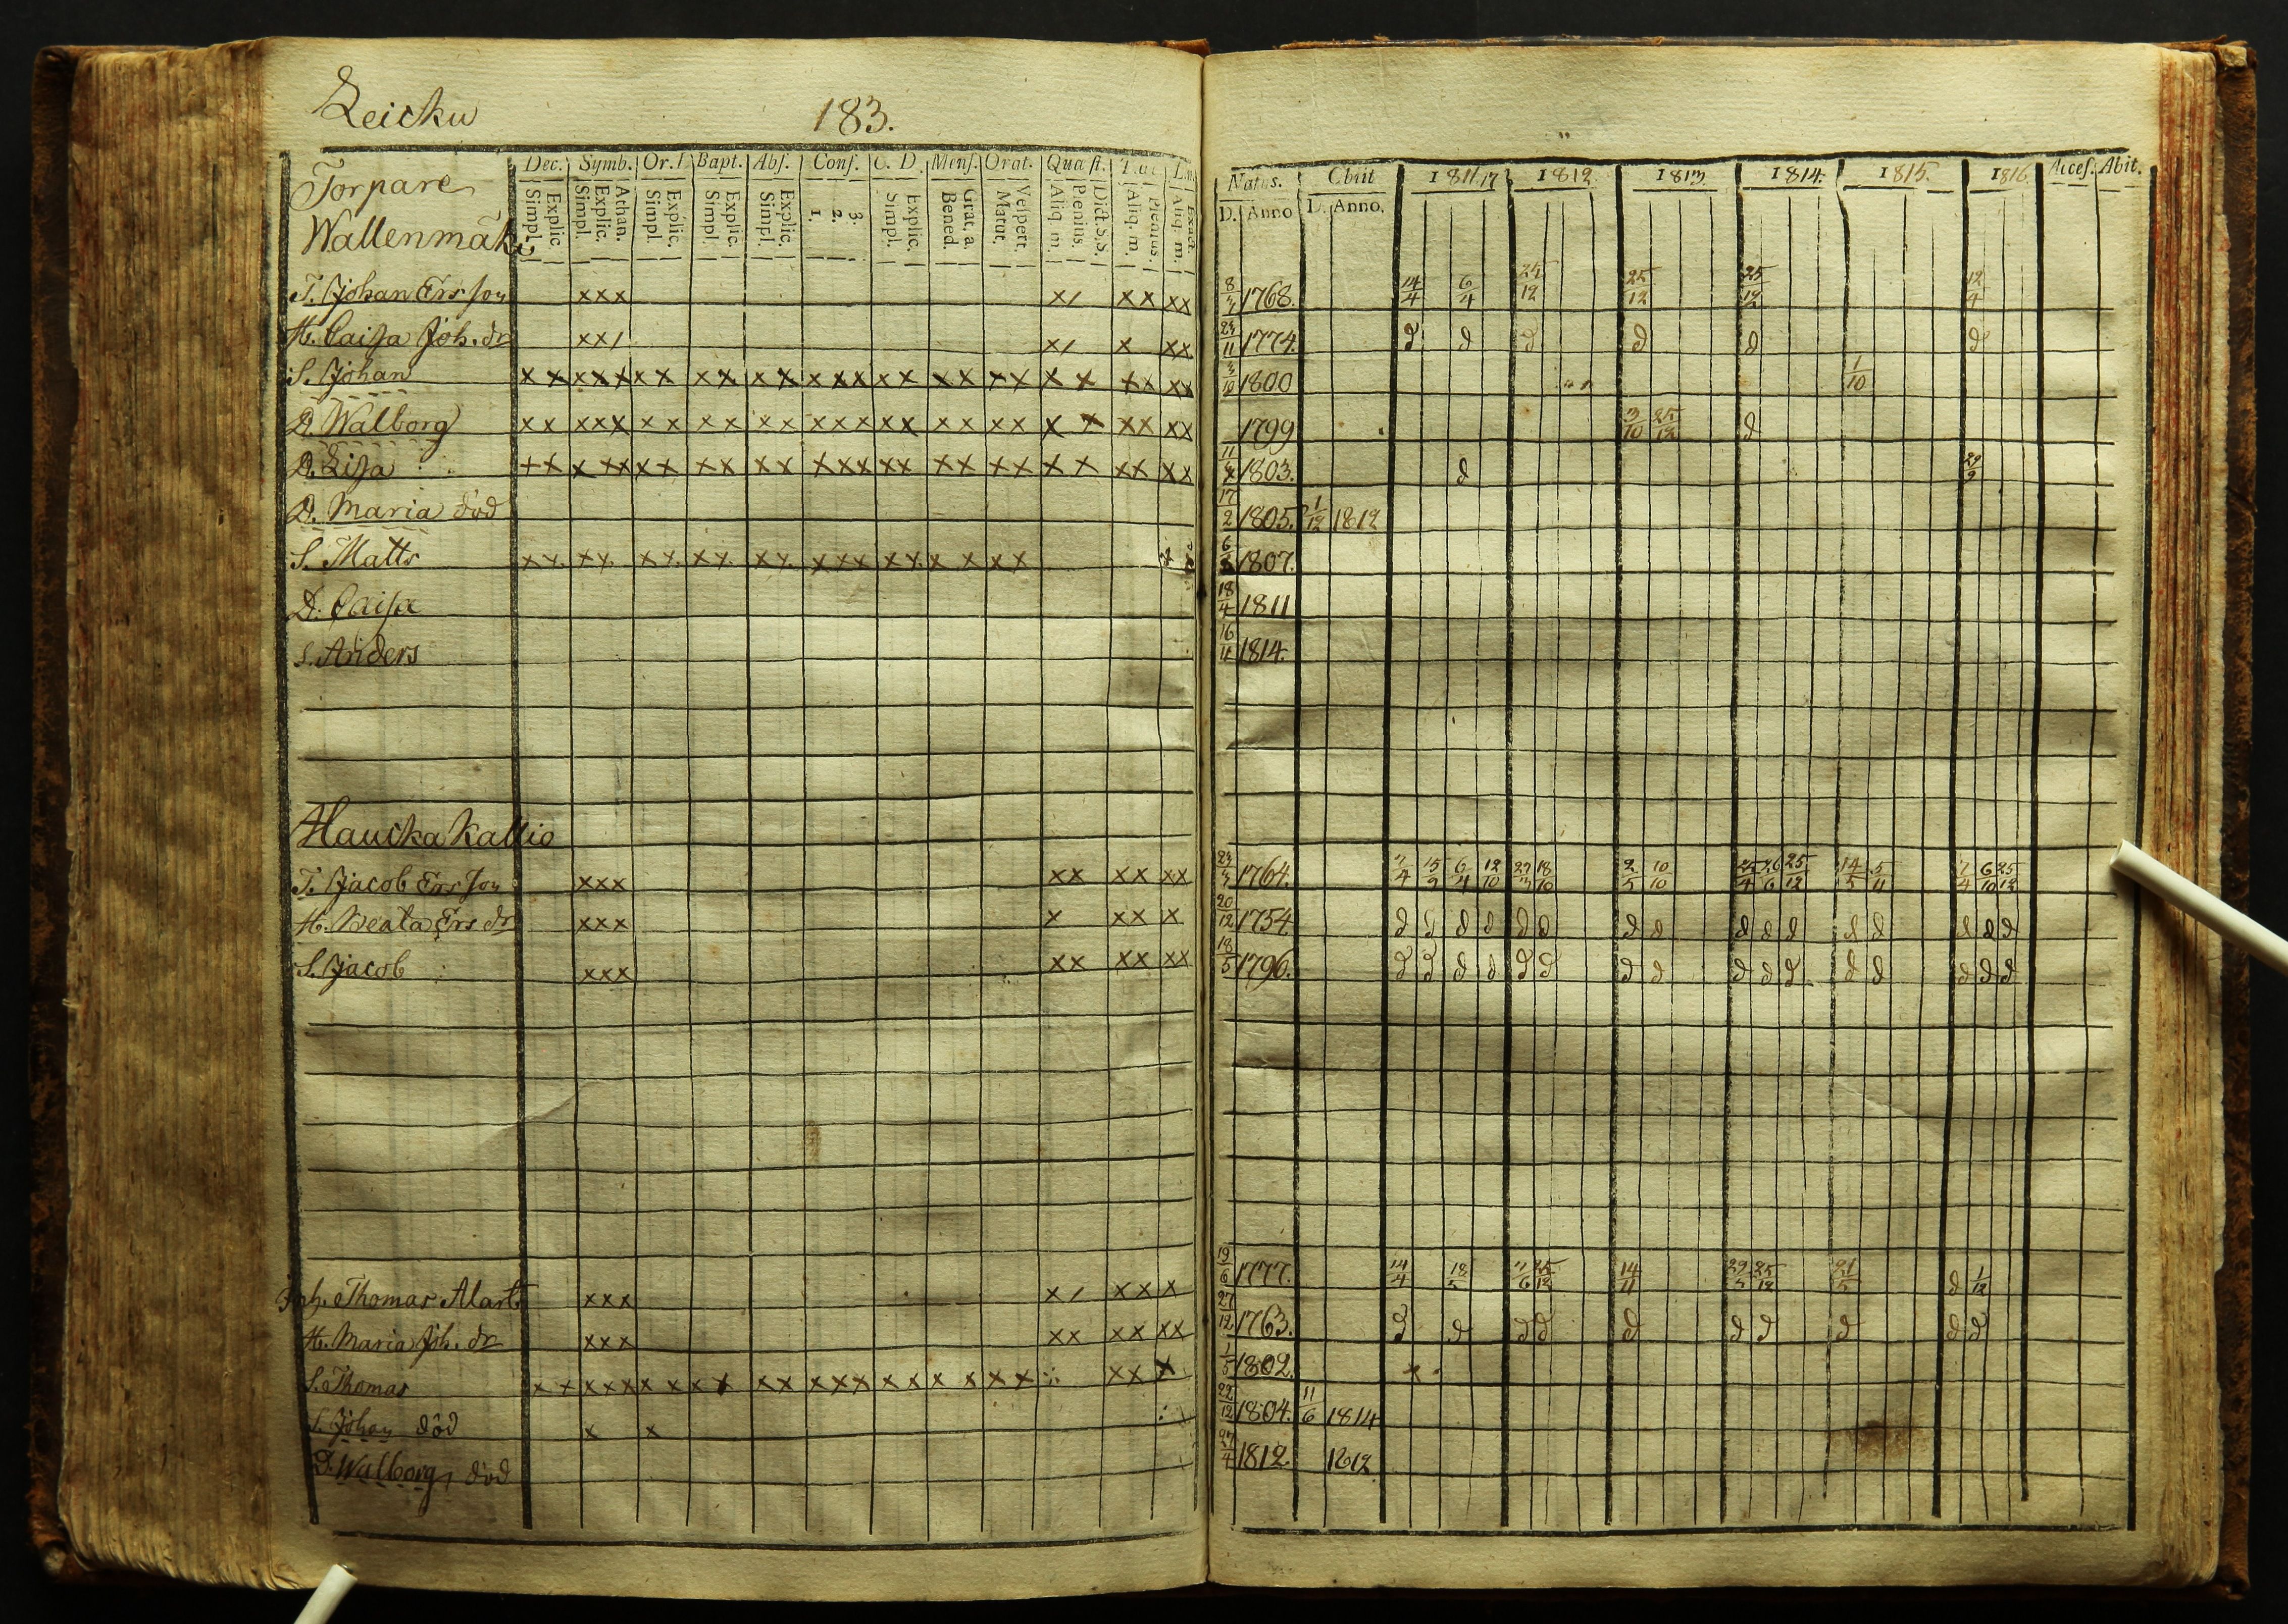 Leicku 183.
Torpare
Wallenmäki
Dec. Symb. Or. Bapt. Abs. Conf. C. D. Mens. Orat. Quæst.
Explic. Simpl. Athan. Explic. Simpl. Explic. Simpl. Explic. Simpl. Explic. Simpl. 3. 2. 1. Explic. Simpl. Grat. a. Bened. Vespert. Matut. Dict. S.S. Plenius. Aliq. m. Plenius. Aliq. m. Exact. Aliq. m.
Natus. Obiit 1811/17 1812. 1813. 1814. 1815. 1816. Access. Abit.
D. Anno D. Anno.
T. Johan Ersson xxx x/ xx xx 8/3 1768. 14/4 6/4 25/12 25/12 25/12 12/4
H. Caisa Joh. dr xx/ x/ x xx 23/11 1774. d d d d d d
S. Johan xx xxx xx xx xx xxx xx xx xx xx xx xx 3/10 1800 1/10
D. Walborg xx xxx xx xx xx xxx xx xx xx xx xx xx 1799 3/10 25/12 d
D. Lisa xx xxx xx xx xx xxx xx xx xx xx xx xx 1803. d 29/9
D. Maria död 17/2 1805. 1/12 1812
S. Matts xx xx xx xx xx xxx xx x x xx 1807.
D. Caisa 18/4 1811
S. Anders 16/11 1814.
Haucka kallio
T. Jacob Ersson xxx xx xx xx 23/3 1764. 7/4 15/9 6/4 12/10 18/10 2/5 10/10 25/4 26/6 25/12 14/5 5/11 7/4 6/10 25/12
H. Beata Ers dr xxx x xx x 20/12 1754 d d d d d d d d d d d d d d d d
S. Jacob xxx xx xx xx 18/5 1796. d d d d d d d d d d d d d d d d
Inh. Thomas Mart. xxx x/ xx x 19/6 1777. 14/4 18/5 25/12 14/11 25/12 21/5 d 1/12
H. Maria Joh. dr xxx xx xx xx 27/12 1763. d d d d d d d d d d
S. Thomas xx xxx xx xx xx xxx xx x x xx xx x 1/5 1802. x
S. Johan död x x 22/12 1804. 11/6 1814
D. Walborg död 27/4 1812. 1812.